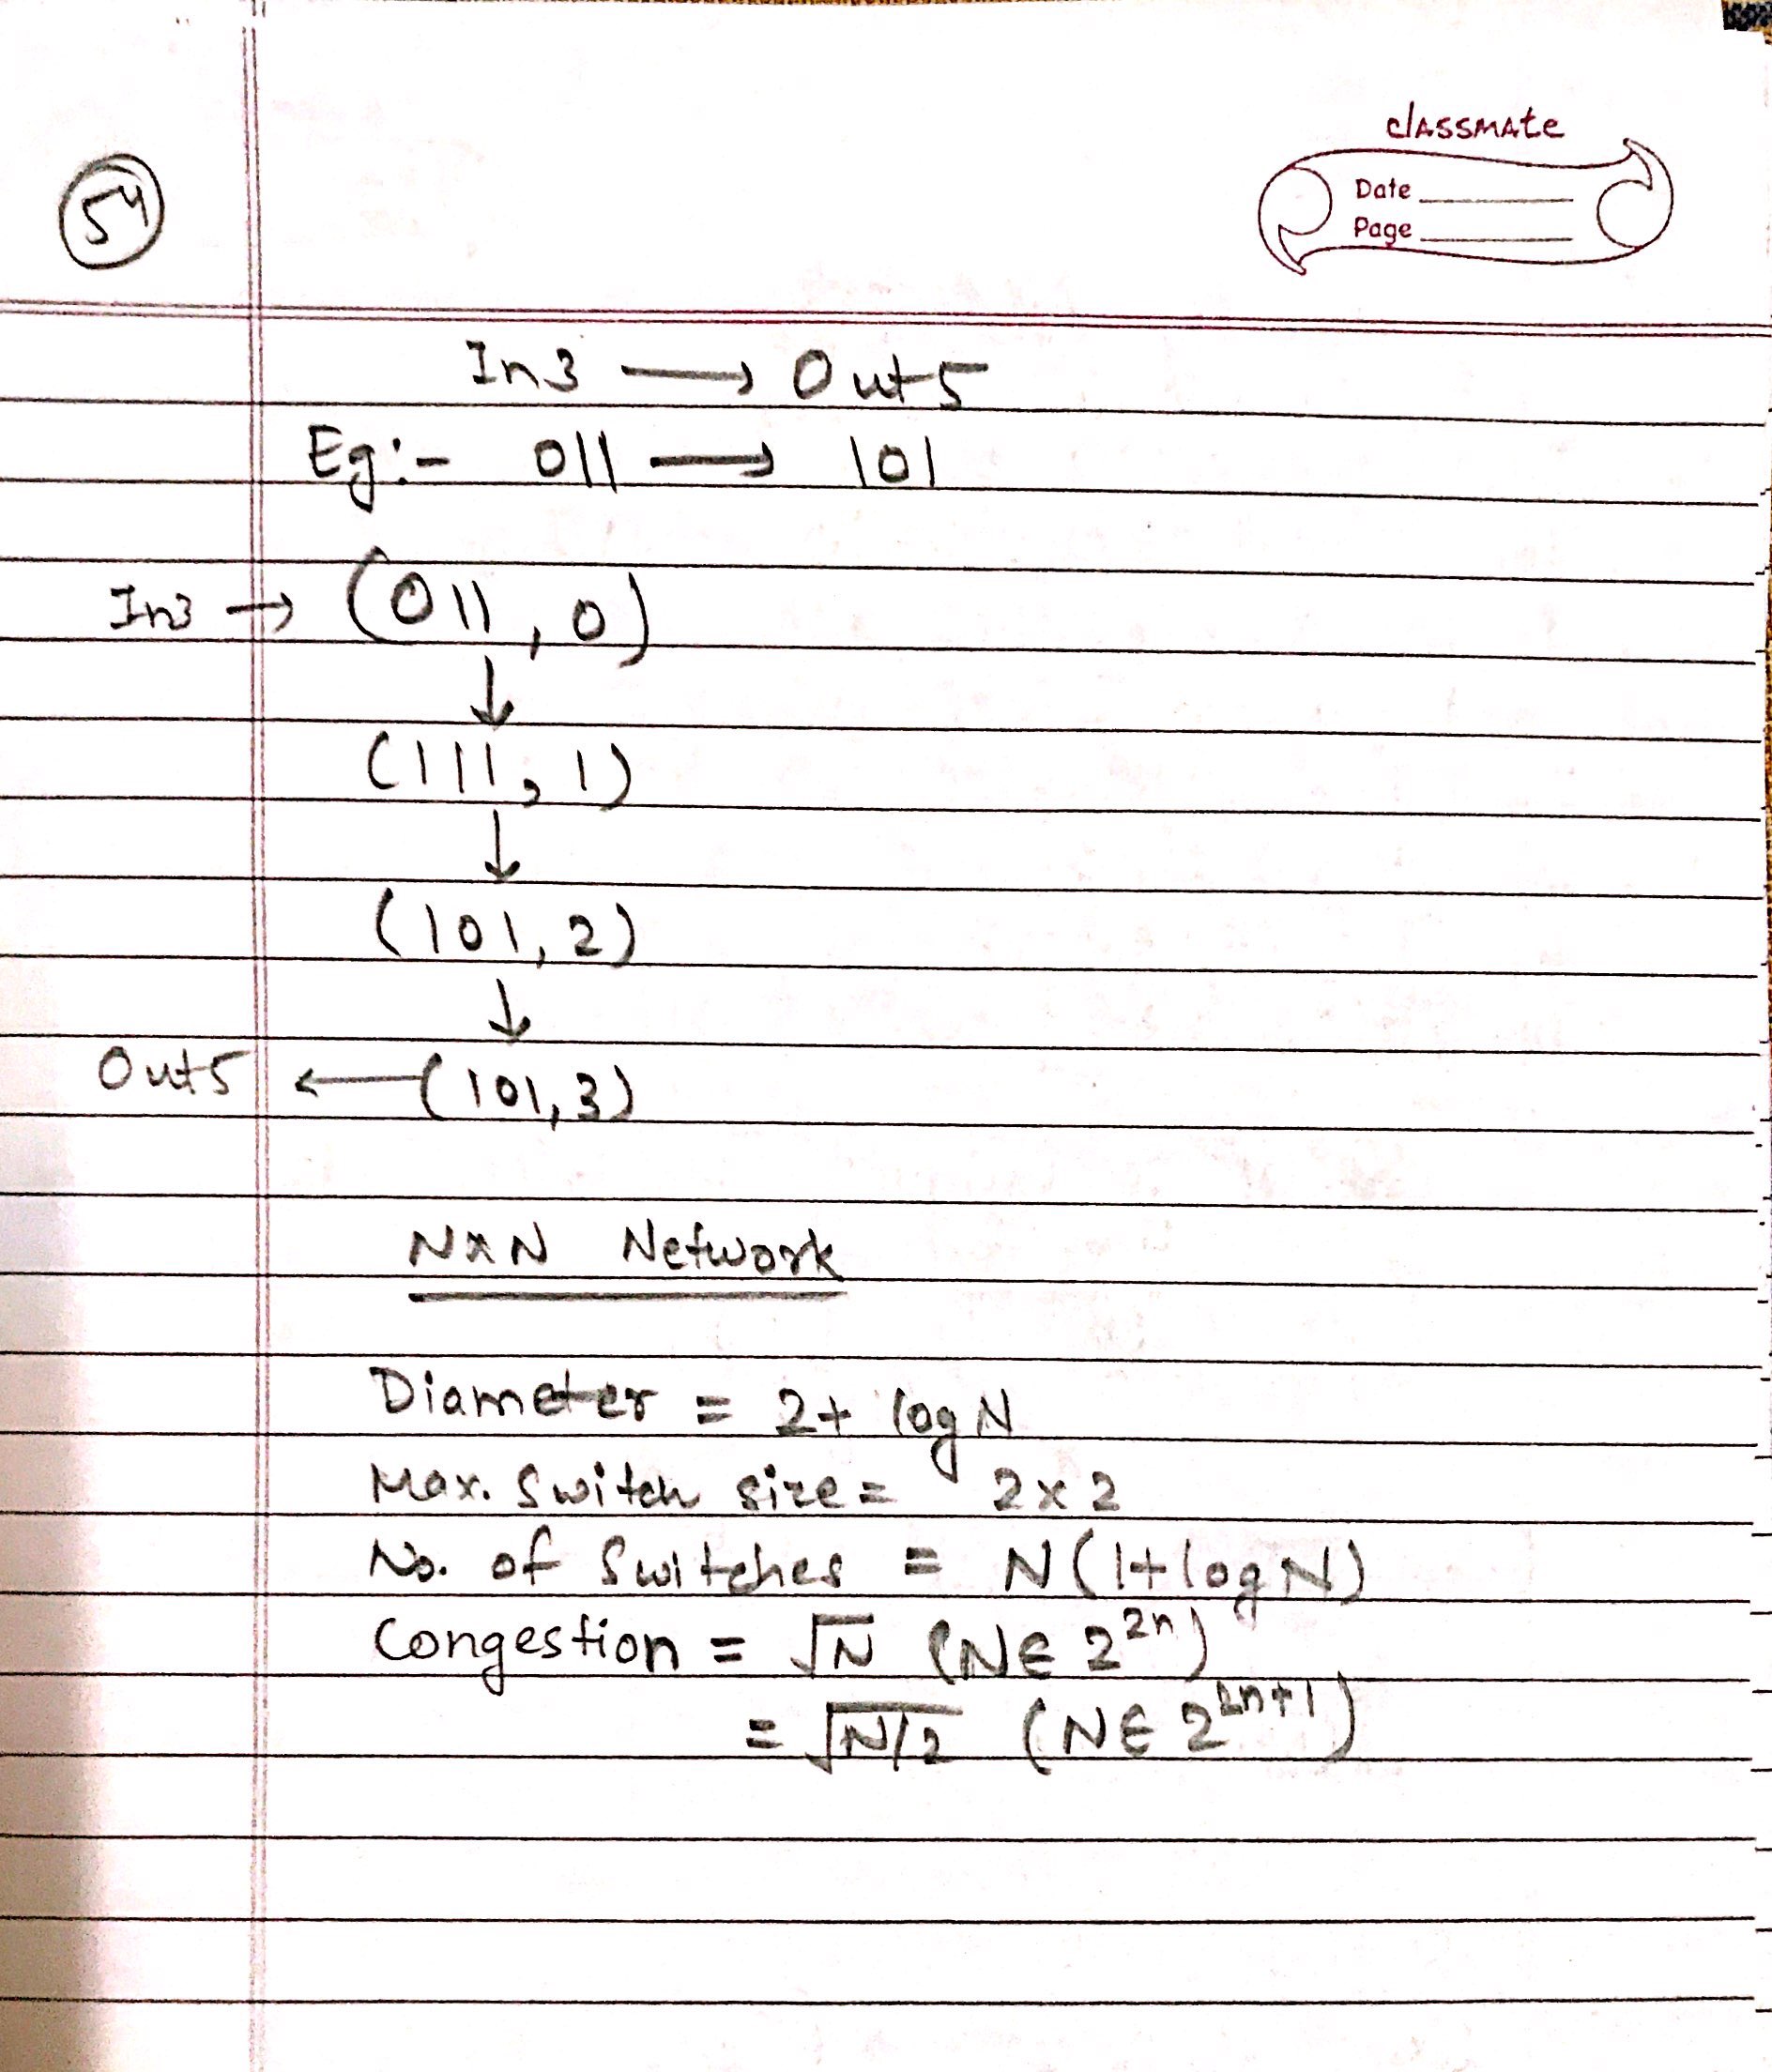 classmate
Date
Page
54
In3 → Out5
Eg:- 011 → 101
In3 → (011, 0)
↓
(111, 1)
↓
(101, 2)
↓
Out5 ← (101, 3)
NxN Network
Diameter = 2+ log N
Max. Switch size = 2x2
No. of Switches = N(1+logN)
Congestion = √N (N∈ 2²ⁿ)
= √N/2 (N∈ 2²ⁿ⁺¹)